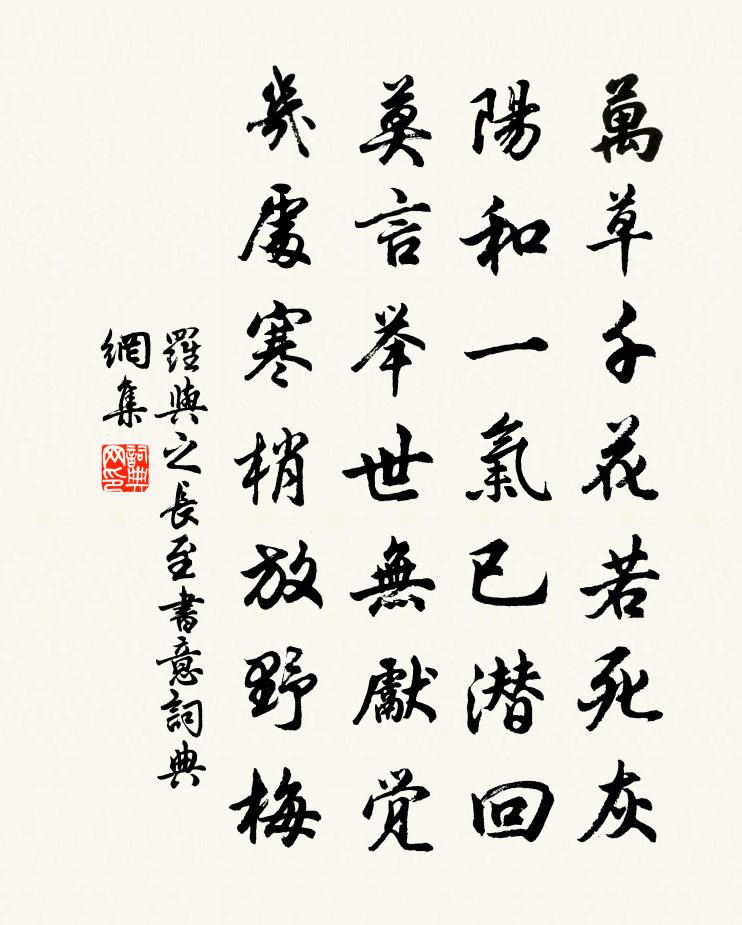 萬草千花若死灰
陽和一氣已潜回
莫言举世無獻覚
幾處寒梢放野梅
羅與之長至書意詞典
網集
詞典
网印